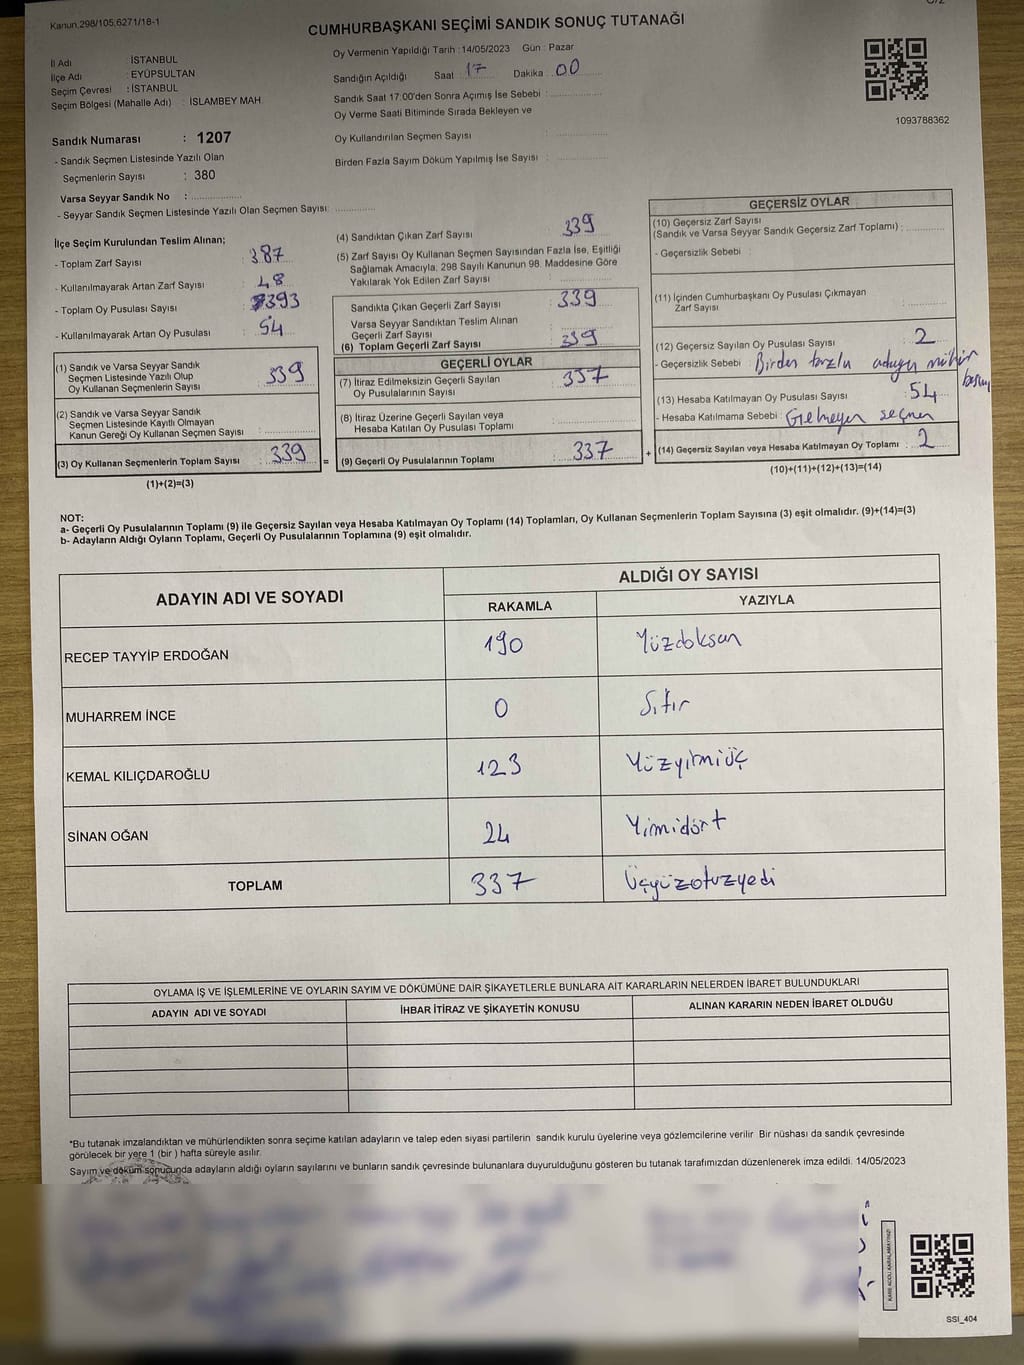 Kanun.298/105,6271/18-1
CUMHURBAŞKANI SEÇİMİ SANDIK SONUÇ TUTANAĞI
İl Adı İSTANBUL
İlçe Adı : EYÜPSULTAN
Seçim Çevresi : İSTANBUL
Seçim Bölgesi (Mahalle Adı) : İSLAMBEY MAH.
Sandık Numarası : 1207
- Sandık Seçmen Listesinde Yazılı Olan
Seçmenlerin Sayısı : 380
Varsa Seyyar Sandık No :
- Seyyar Sandık Seçmen Listesinde Yazılı Olan Seçmen Sayısı:
Oy Vermenin Yapıldığı Tarih :14/05/2023 Gün : Pazar
Sandığın Açıldığı Saat : 17 Dakika : 00
Sandık Saat 17:00'den Sonra Açımış İse Sebebi :
Oy Verme Saati Bitiminde Sırada Bekleyen ve
Oy Kullandırılan Seçmen Sayısı :
Birden Fazla Sayım Döküm Yapılmış İse Sayısı :
1093788362
İlçe Seçim Kurulundan Teslim Alınan;
- Toplam Zarf Sayısı : 387
- Kullanılmayarak Artan Zarf Sayısı : 48
- Toplam Oy Pusulası Sayısı : 393
- Kullanılmayarak Artan Oy Pusulası : 54
(1) Sandık ve Varsa Seyyar Sandık
Seçmen Listesinde Yazılı Olup
Oy Kullanan Seçmenlerin Sayısı : 339
(2) Sandık ve Varsa Seyyar Sandık
Seçmen Listesinde Kayıtlı Olmayan
Kanun Gereği Oy Kullanan Seçmen Sayısı :
(3) Oy Kullanan Seçmenlerin Toplam Sayısı : 339 =
(1)+(2)=(3)
(4) Sandıktan Çıkan Zarf Sayısı : 339
(5) Zarf Sayısı Oy Kullanan Seçmen Sayısından Fazla İse, Eşitliği
Sağlamak Amacıyla, 298 Sayılı Kanunun 98. Maddesine Göre
Yakılarak Yok Edilen Zarf Sayısı :
Sandıkta Çıkan Geçerli Zarf Sayısı : 339
Varsa Seyyar Sandıktan Teslim Alınan
Geçerli Zarf Sayısı :
(6) Toplam Geçerli Zarf Sayısı : 339
GEÇERLİ OYLAR
(7) İtiraz Edilmeksizin Geçerli Sayılan
Oy Pusulalarının Sayısı : 337
(8) İtiraz Üzerine Geçerli Sayılan veya
Hesaba Katılan Oy Pusulası Toplamı :
(9) Geçerli Oy Pusulalarının Toplamı : 337 +
GEÇERSİZ OYLAR
(10) Geçersiz Zarf Sayısı
(Sandık ve Varsa Seyyar Sandık Geçersiz Zarf Toplamı) :
- Geçersizlik Sebebi :
(11) İçinden Cumhurbaşkanı Oy Pusulası Çıkmayan
Zarf Sayısı :
(12) Geçersiz Sayılan Oy Pusulası Sayısı : 2
- Geçersizlik Sebebi : Birden fazla adaya mühür
(13) Hesaba Katılmayan Oy Pusulası Sayısı : 54
- Hesaba Katılmama Sebebi : Gelmeyen seçmen
(14) Geçersiz Sayılan veya Hesaba Katılmayan Oy Toplamı : 2
(10)+(11)+(12)+(13)=(14)
NOT:
a- Geçerli Oy Pusulalarının Toplamı (9) ile Geçersiz Sayılan veya Hesaba Katılmayan Oy Toplamı (14) Toplamları, Oy Kullanan Seçmenlerin Toplam Sayısına (3) eşit olmalıdır. (9)+(14)=(3)
b- Adayların Aldığı Oyların Toplamı, Geçerli Oy Pusulalarının Toplamına (9) eşit olmalıdır.
ADAYIN ADI VE SOYADI
ALDIĞI OY SAYISI
RAKAMLA YAZIYLA
RECEP TAYYİP ERDOĞAN 190 Yüzdoksan
MUHARREM İNCE 0 Sıfır
KEMAL KILIÇDAROĞLU 123 Yüzyirmiüç
SİNAN OĞAN 24 Yimidört
TOPLAM 337 Üçyüzotuzyedi
OYLAMA İŞ VE İŞLEMLERİNE VE OYLARIN SAYIM VE DÖKÜMÜNE DAİR ŞİKAYETLERLE BUNLARA AİT KARARLARIN NELERDEN İBARET BULUNDUKLARI
ADAYIN ADI VE SOYADI İHBAR İTİRAZ VE ŞİKAYETİN KONUSU ALINAN KARARIN NEDEN İBARET OLDUĞU
*Bu tutanak imzalandıktan ve mühürlendikten sonra seçime katılan adayların ve talep eden siyasi partilerin sandık kurulu üyelerine veya gözlemcilerine verilir Bir nüshası da sandık çevresinde
görülecek bir yere 1 (bir ) hafta süreyle asılır.
Sayım ve döküm sonucunda adayların aldığı oyların sayılarını ve bunların sandık çevresinde bulunanlara duyurulduğunu gösteren bu tutanak tarafımızdan düzenlenerek imza edildi. 14/05/2023
KARE KODU KARALAMAYINIZ!
SSİ_404